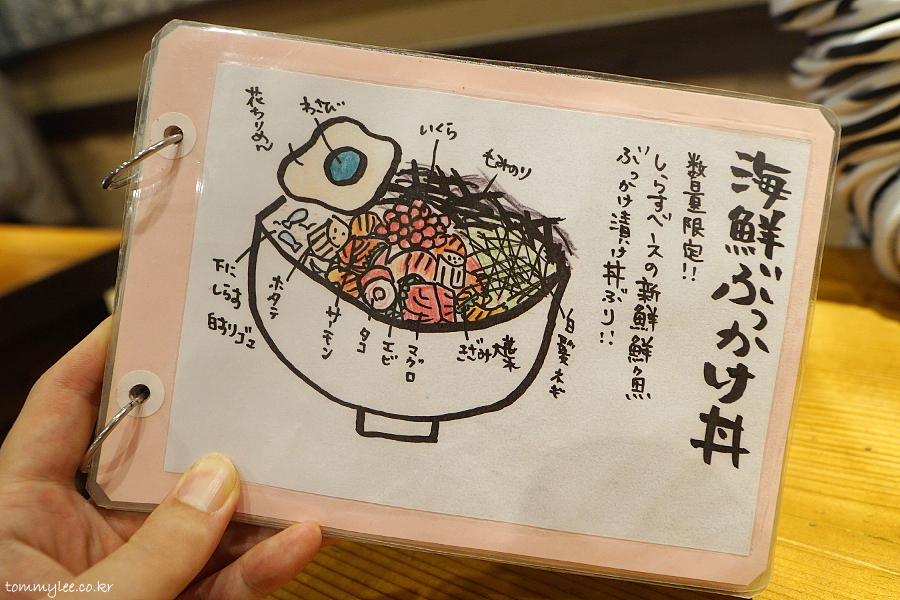 海鮮ぶっかけ丼
数量限定!!
しらすベースの新鮮魚
ぶっかけ漬け丼ぶり!!
もみのり
いくら
わさび
花ちりめん
白髪ネギ
きざみ大葉
マグロ
エビ
タコ
サーモン
ホタテ
下に
しらす
白すりゴマ
tommylee.co.kr